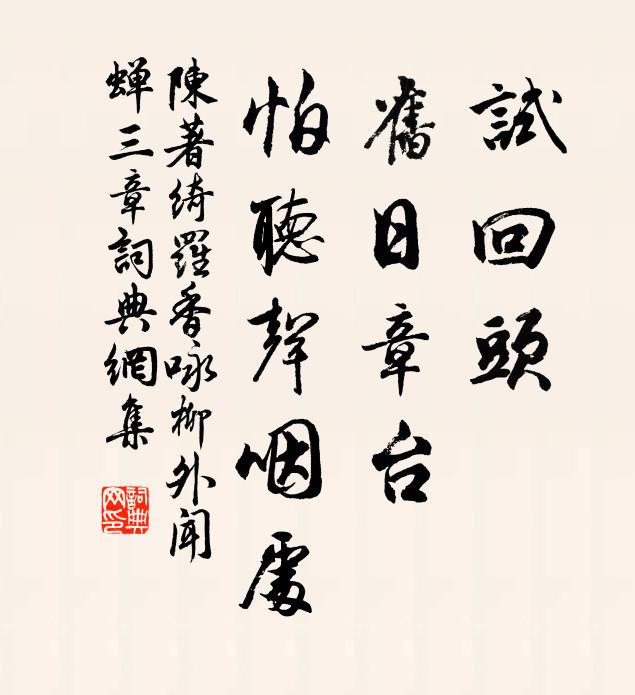 試回頭
舊日章台
怕聽聲咽處
陳著綺羅香咏柳外聞
蟬三章詞典網集
詞典
网印